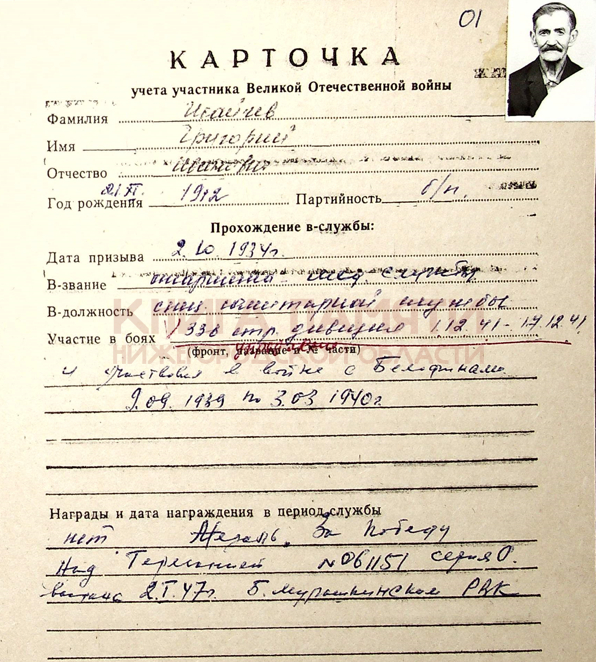 01
КАРТОЧКА
учета участника Великой Отечественной войны
Фамилия Исайчев
Имя Григорий
Отчество Иванович
Год рождения 1912 Партийность б/п.
Прохождение в-службы:
Дата призыва 2.10.1934г.
В-звание старшина мед. службы
В-должность санитарной службы
Участие в боях 1336 стр. дивизия 1.12.41 - 17.12.41
(фронт, название и № части)
КНИГА ПАМЯТИ
НИЖЕГОРОДСКОЙ ОБЛАСТИ
и участвовал в войне с Белофинами
9.09.1939 по 3.03.1940г.
Награды и дата награждения в период службы
нет Медаль "За Победу
над Германией №061151 серия О.
2.I.47г. Б.Мурашкинским РВК